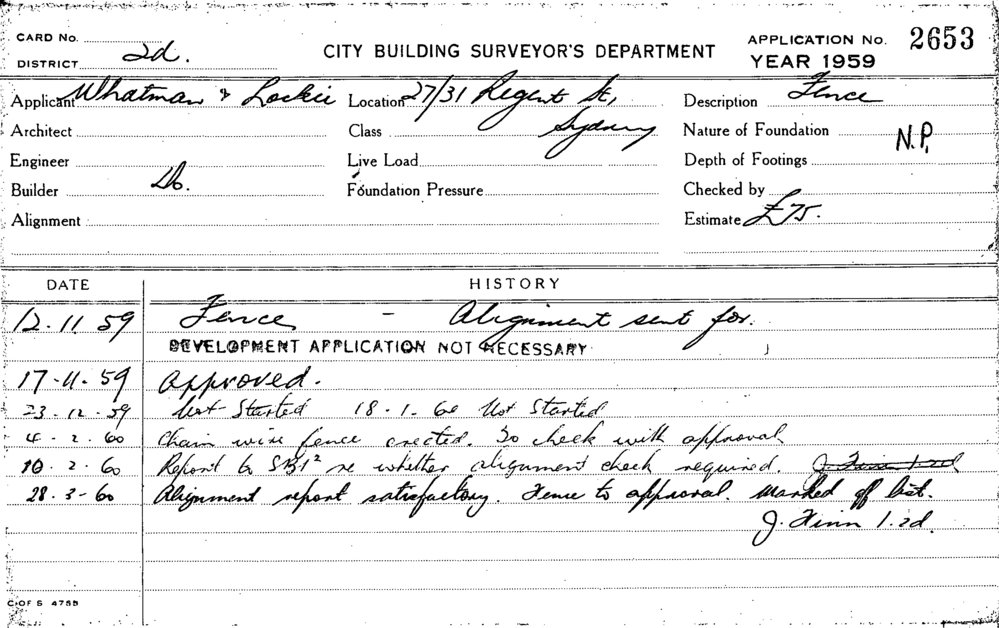 CARD No.
DISTRICT 2d.
CITY BUILDING SURVEYOR'S DEPARTMENT
APPLICATION No. 2653
YEAR 1959
Applicant Whatman & Lockie Location 27/31 Regent St, Description Fence
Architect Class Sydney Nature of Foundation N.P.
Engineer Live Load Depth of Footings
Builder Do. Foundation Pressure Checked by
Alignment Estimate £75.
DATE HISTORY
12.11.59 Fence - Alignment sent for.
DEVELOPMENT APPLICATION NOT NECESSARY
17-11-59 Approved.
23-12-59 Not Started 18-1-60 Not Started
4-2-60 Chain wire fence erected. To check with approval
10.2.60 Report to SBI² re whether alignment check required. J. Finn 1.2d
28-3-60 Alignment report satisfactory. Fence to approval. Marked off list.
J. Finn 1.2d.
C OF S 4755